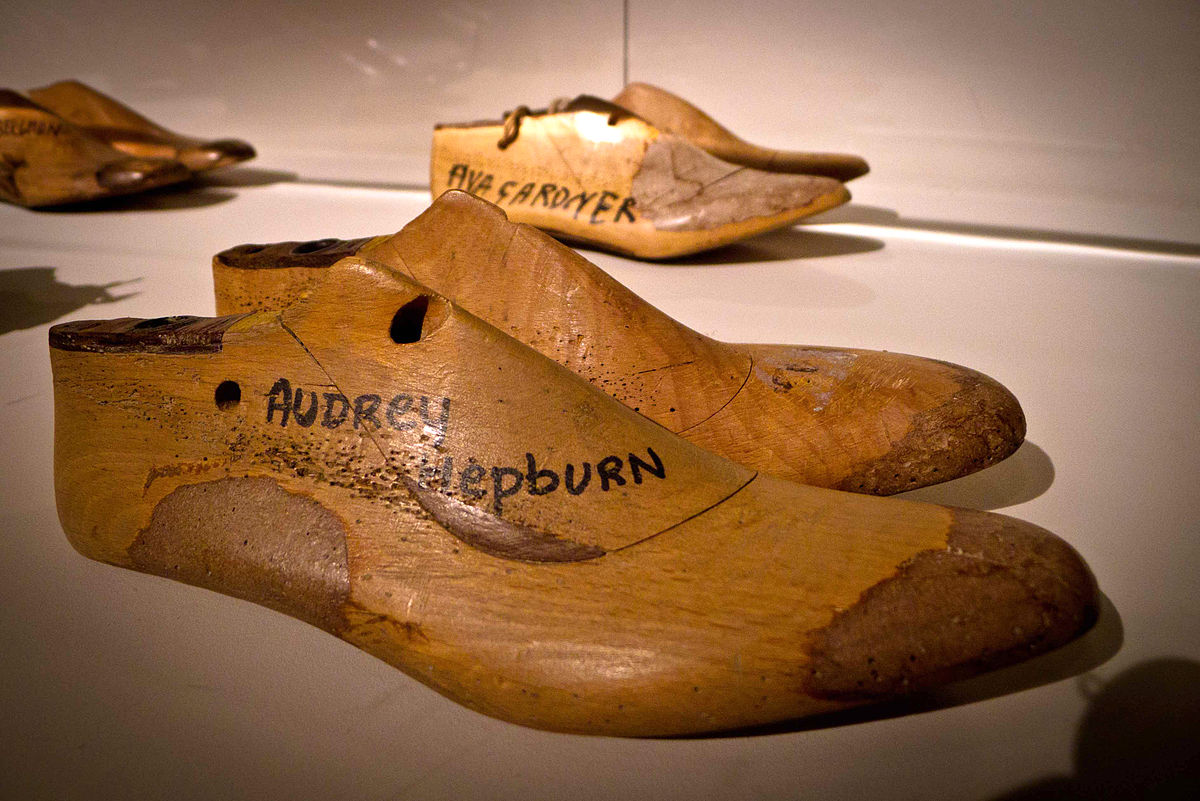 AVA GARDNER
AUDREY
HepbURN